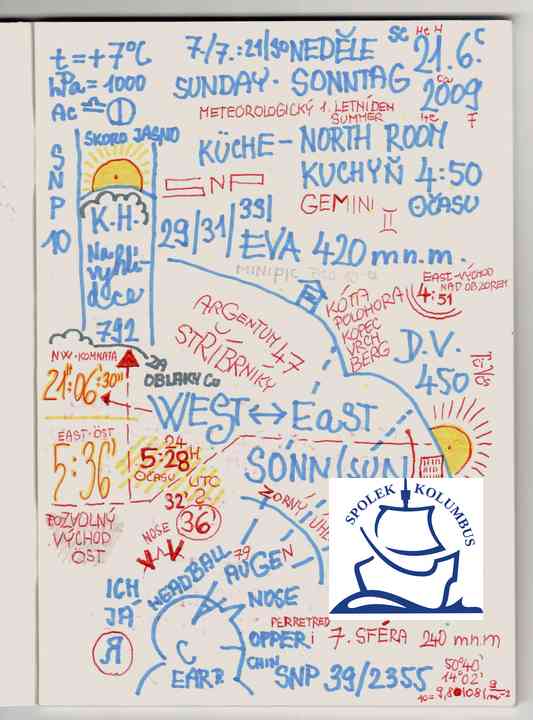 t=+7°C
7/7.:21/30 NEDĚLE
21.6.
hPa=1000
SUNDAY·SONNTAG
2009
Ac
METEOROLOGICKÝ 1. LETNÍ DEN
SUMMER
SKORO JASNO
KÜCHE-NORTH ROOM
KUCHYŇ 4:50
OČASU
SNP 10
SNP
GEMINI
K.H.
29/31/33
EVA 420 m n.m.
EAST-VÝCHOD
NAD OBZOREM
4:51
KÓTA
POLOHORA
KOPEC
VRCH
BERG
ARGENTUM 47
STŘÍBRNÍKY
792
D.V.
450
NW-KOMNATA
21h06'30"
ZA
OBLAKY Cu
WEST↔EAST
EAST-ÖST
5:36'
24
5:28H
OČASU
UTC
2
32'
36'
SONN/SUN
ZORNÝ ÚHEL
POZVOLNÝ
VÝCHOD
ÖST
NOSE
SPOLEK KOLUMBUS
HEADBALL
79
AUGEN
ICH
JÁ
Я
NOSE
PERRETRED
OPPER
7. SFÉRA 240 m n.m
CHIN
EAR
SNP 39/2355
50°40'
14°02'